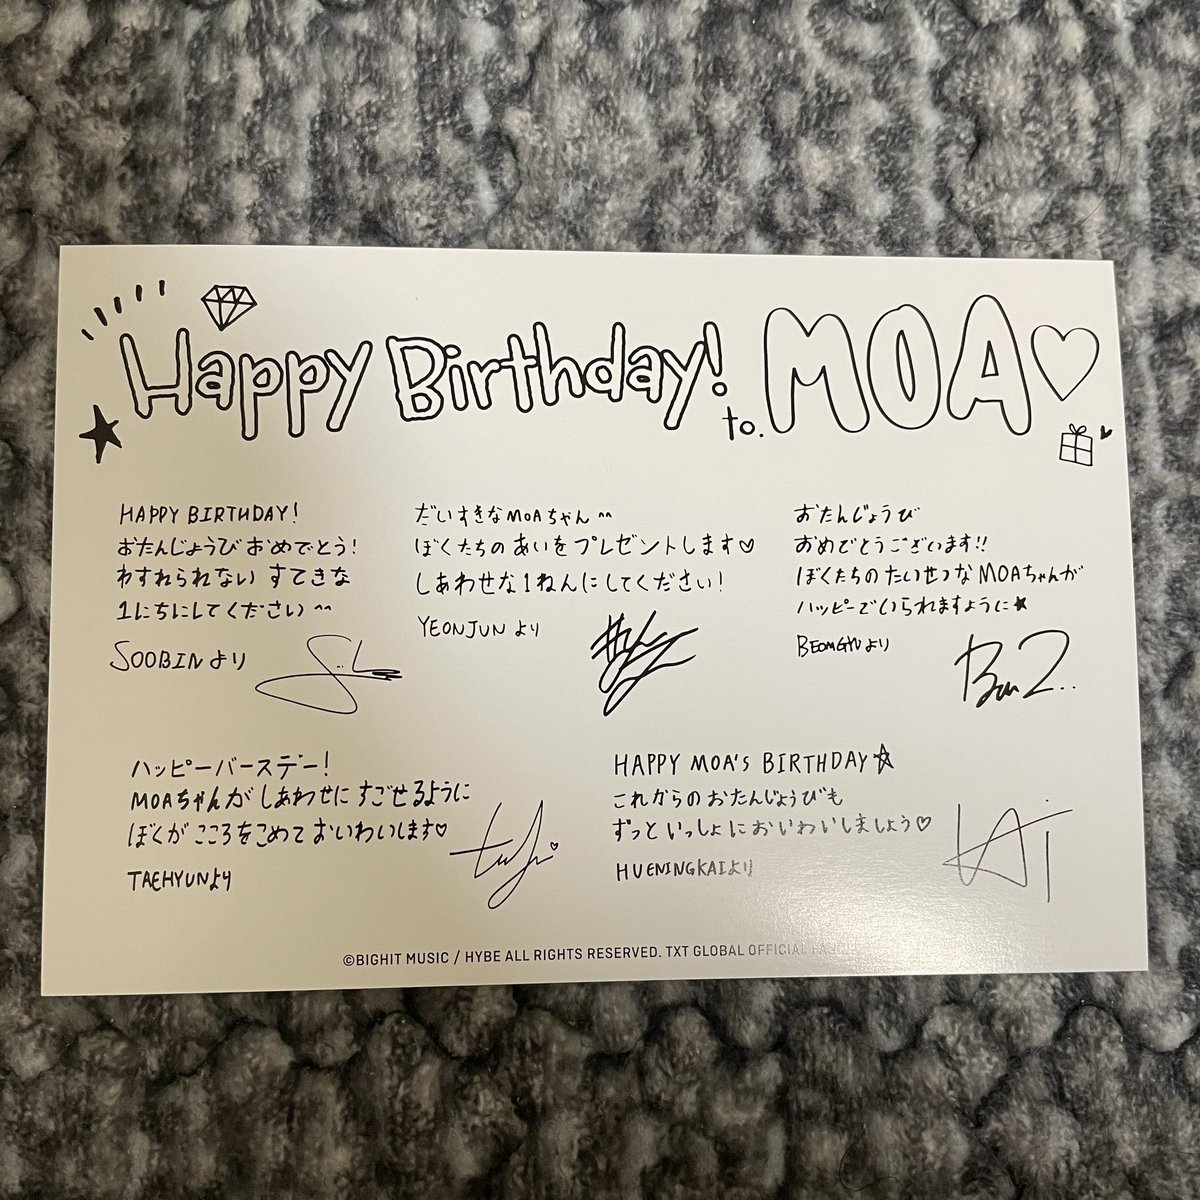 Happy Birthday! to. MOA♡
HAPPY BIRTHDAY!
おたんじょうび おめでとう!
わすれられない すてきな
1にちにしてください^^
SOOBINより
だいすきなMOAちゃん^^
ぼくたちの あいを プレゼントします♡
しあわせな1ねんにしてください!
YEONJUNより
おたんじょうび
おめでとうございます!!
ぼくたちの たいせつな MOAちゃんが
ハッピーでいられますように★
BEOMGYUより
ハッピーバースデー!
MOAちゃんが しあわせに すごせるように
ぼくが こころをこめて おいわいします♡
TAEHYUNより
HAPPY MOA'S BIRTHDAY☆
これからの おたんじょうびも
ずっと いっしょに おいわいしましょう♡
HUENINGKAIより
©BIGHIT MUSIC / HYBE ALL RIGHTS RESERVED. TXT GLOBAL OFFICIAL